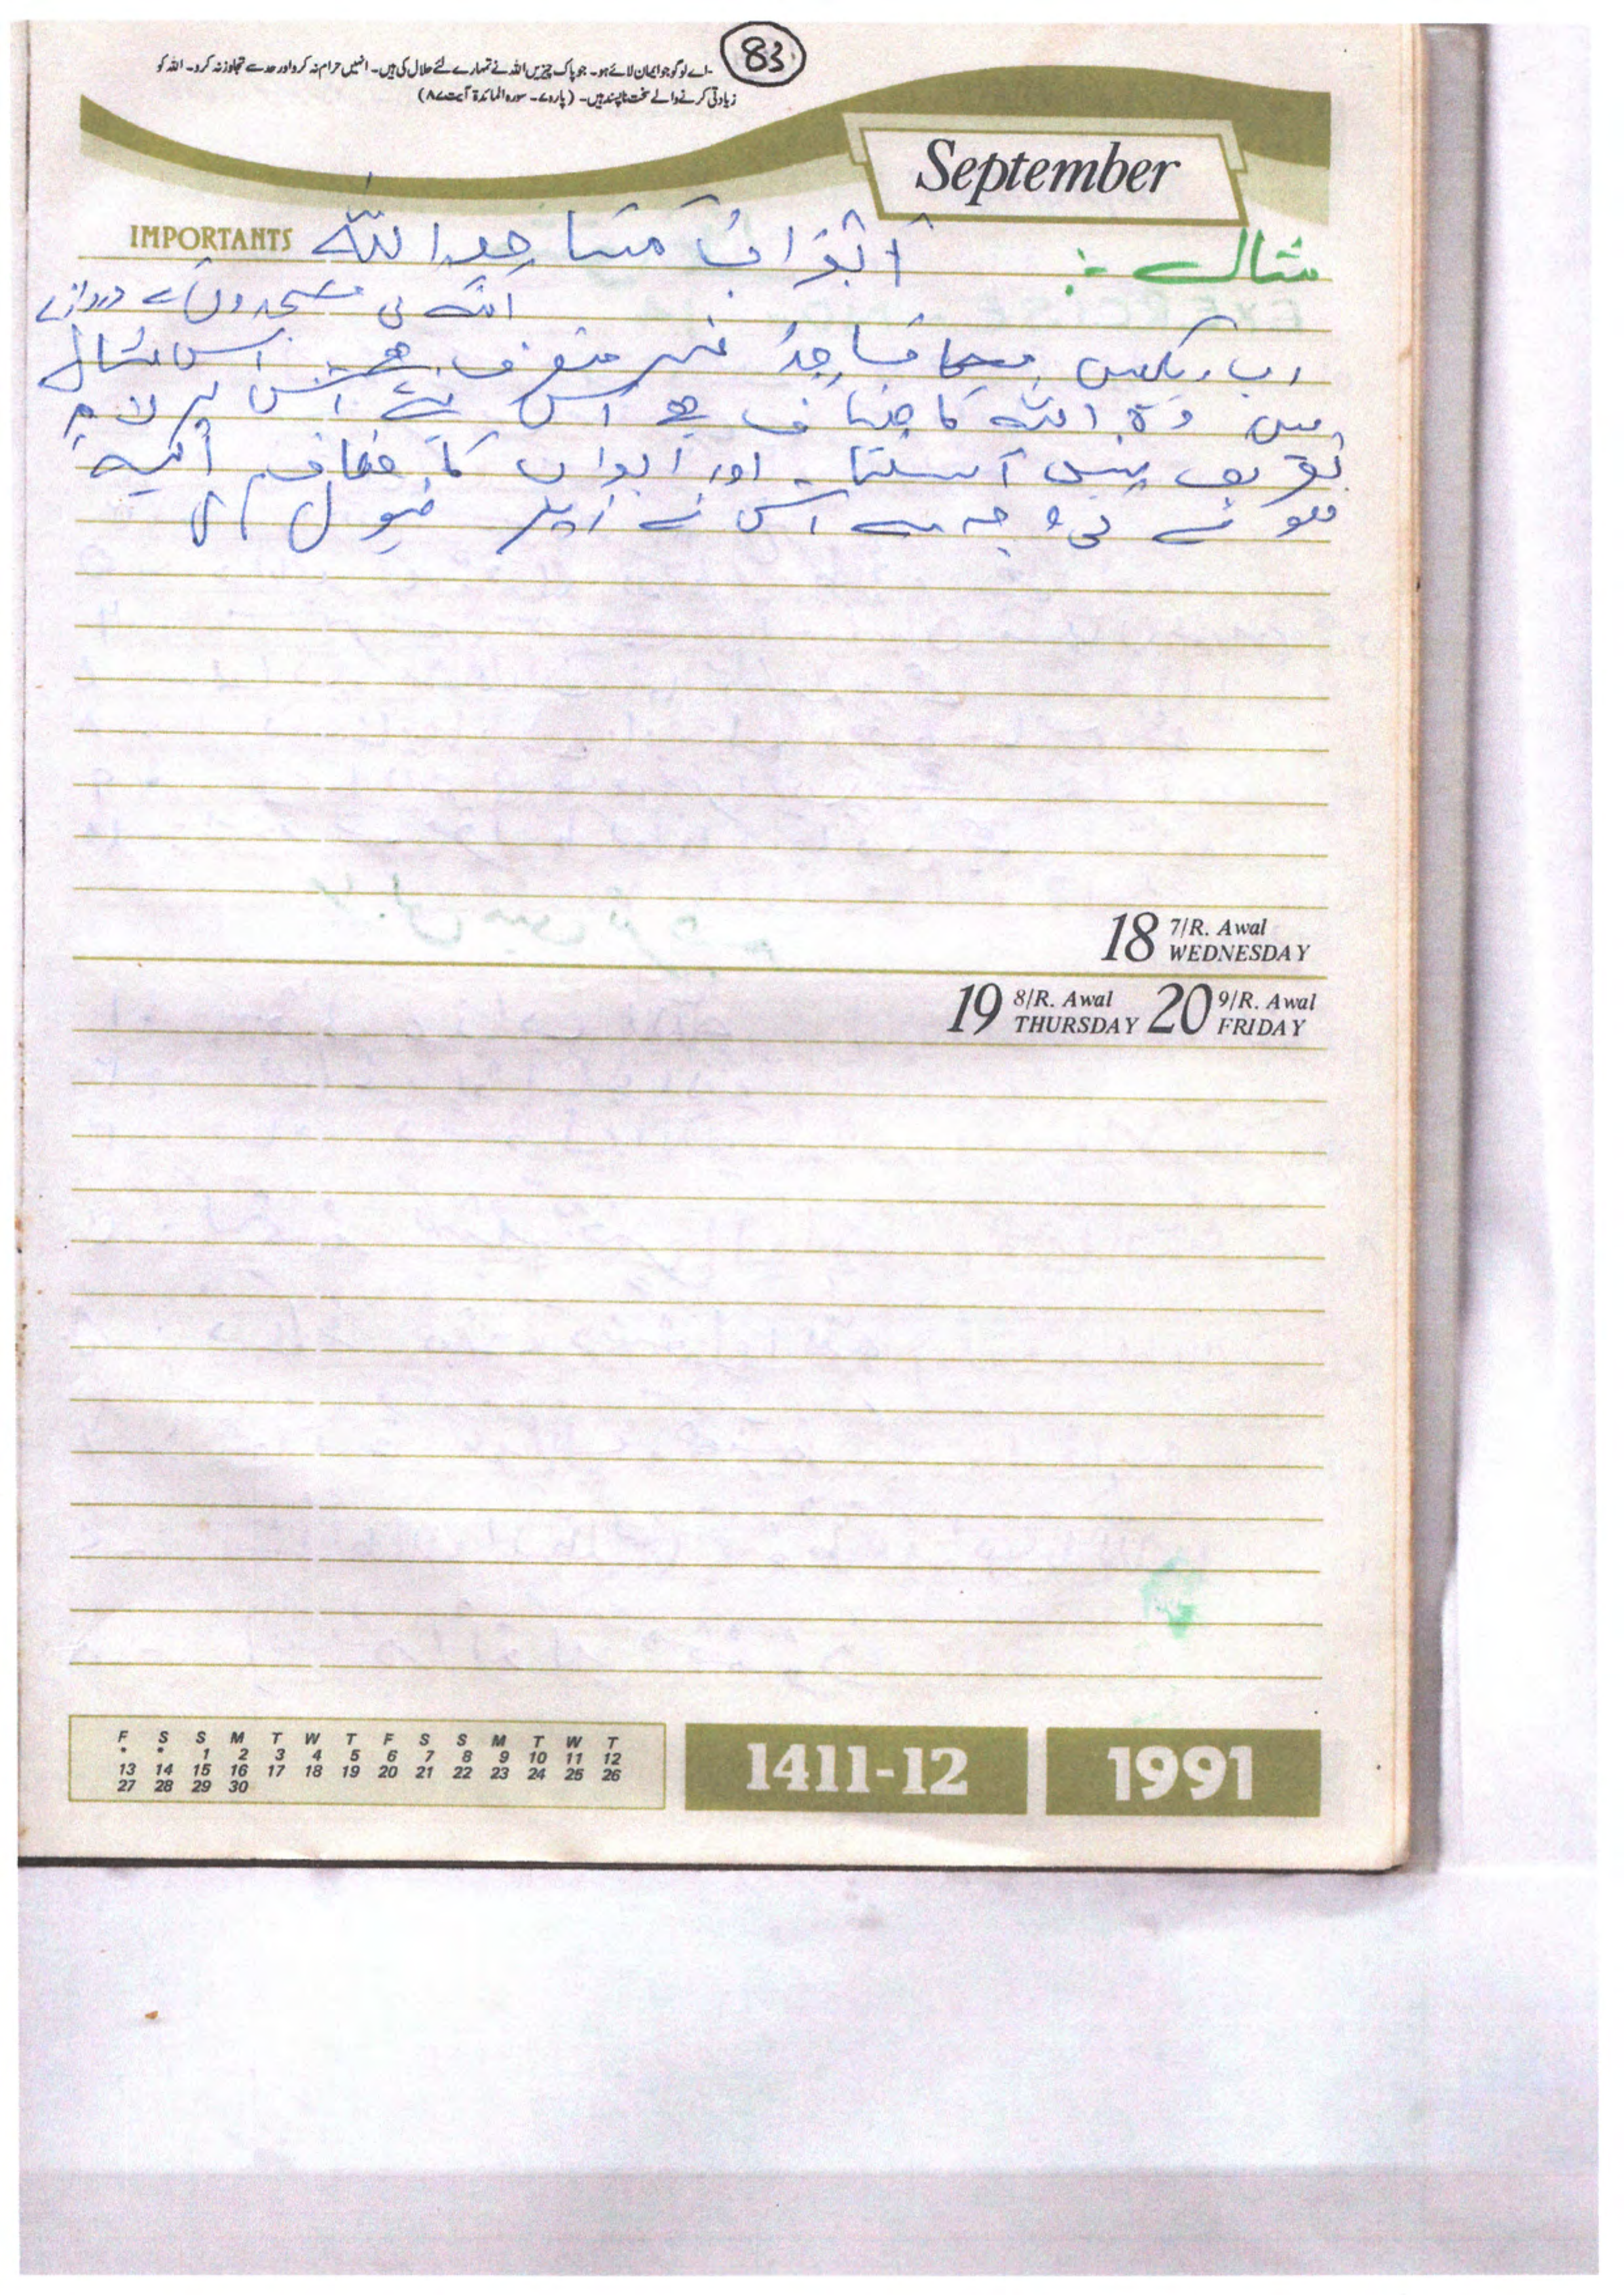 83
اے لوگو جو ایمان لائے ہو۔ جو پاک چیزیں اللہ نے تمہارے لئے حلال کی ہیں۔ انہیں حرام نہ کرو اور حد سے تجاوز نہ کرو۔ اللہ کو
زیادتی کرنے والے سخت ناپسند ہیں۔ (پارہ ۷۔ سورہ المائدۃ آیت ۸۷)
September
IMPORTANTS
مثال : اَبْوَابُ مَسَاجِدِ اللّٰهِ
اللہ کی مسجدوں کے دروازے
اب دیکھیں مساجدُ غیر منصرف ہے۔ اس مثال
میں وہ اللہ کا مضاف ہے اس لئے اس پر لام
تعریف نہیں آسکتا۔ اور ابواب کا مضاف الیہ
ہونے کی وجہ سے اس نے زیر قبول کی
18 7/R. Awal WEDNESDAY
19 8/R. Awal THURSDAY 20 9/R. Awal FRIDAY
F S S M T W T F S S M T W T
* * 1 2 3 4 5 6 7 8 9 10 11 12
13 14 15 16 17 18 19 20 21 22 23 24 25 26
27 28 29 30
1411-12 1991